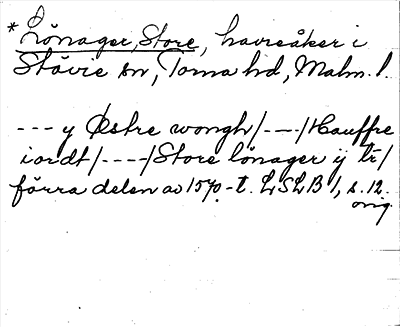 * Lönager, Store, havreåker i
Stävie sn, Torna hd, Malm. l.
--- y Østre wongh/----/Hauffre
iordt/----/Store lönager ij tr/
förra delen av 1570-t. LSLB 1, s. 12.
orig.